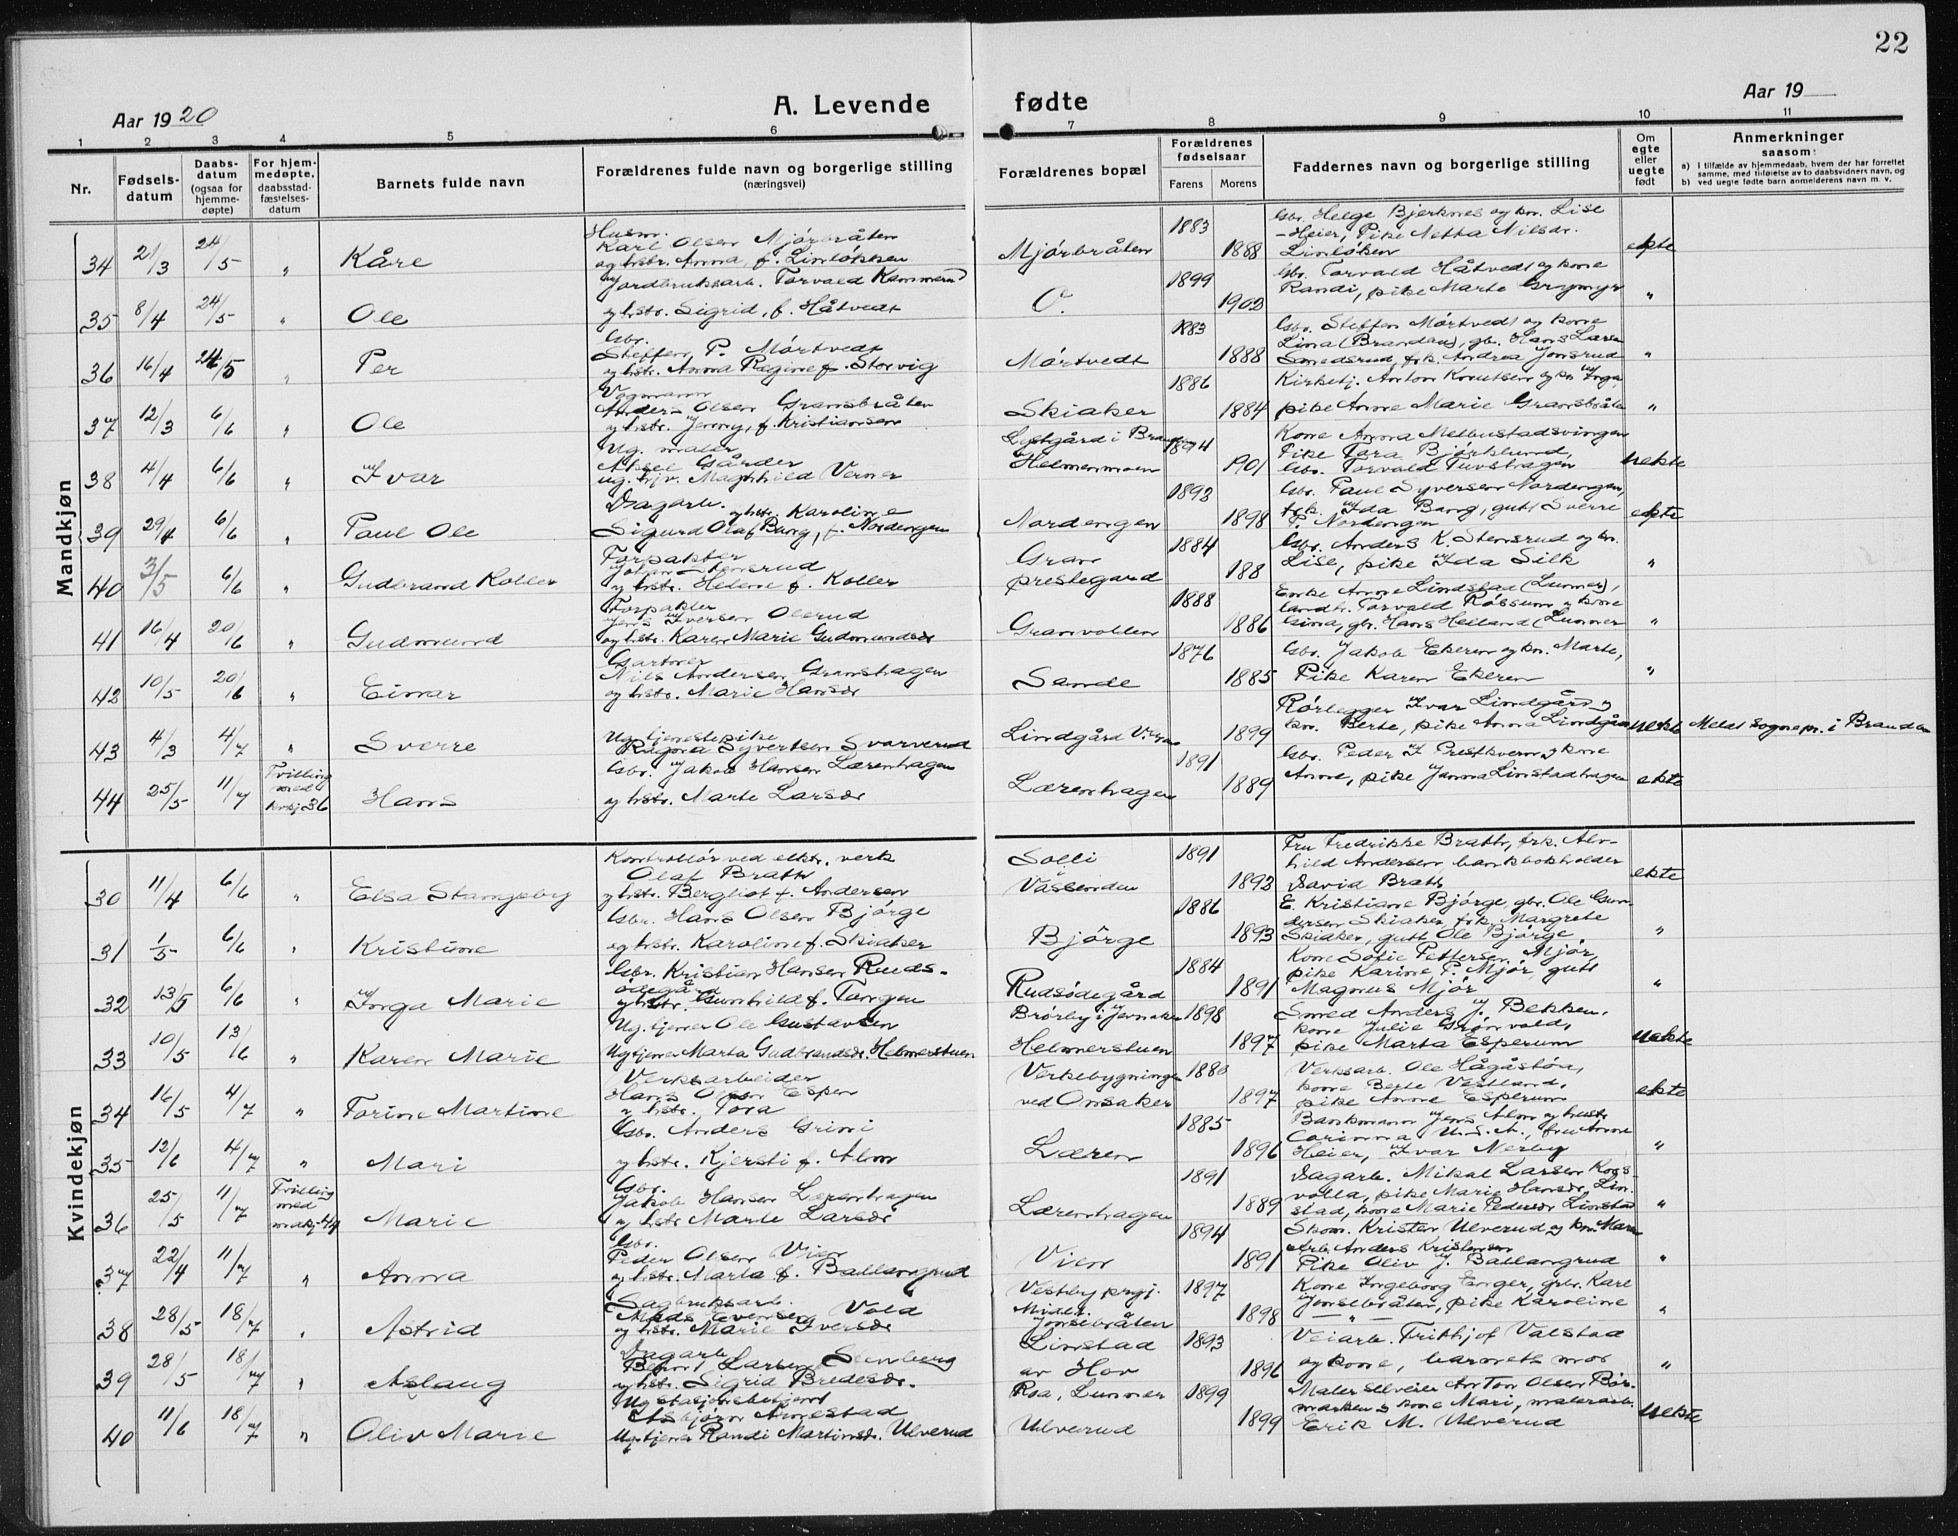 22
Aar 1920
A. Levende fødte
Aar 19
1 2 3 4 5 6 7 8 9 10 11
Nr.
Fødsels-
datum
Daabs-
datum
(ogsaa for
hjemme-
døpte)
For hjem-
medøpte,
daabsstad-
fæstelses-
datum
Barnets fulde navn
Forældrenes fulde navn og borgerlige stilling
(næringsvei)
Forældrenes bopæl
Forældrenes
fødselsaar
Farens Morens
Faddernes navn og borgerlige stilling
Om
egte
eller
uegte
født
Anmerkninger
saasom:
a) I tilfælde av hjemmedaab, hvem der har forrettet
samme, med tilføielse av to daabsvidners navn, og
b) ved uegte fødte barn anmelderens navn m. v.
Mandkjøn
34 21/3 24/5 " Kåre
Husm.
Karl Olsen Mjörbråten
og hstr. Anna, f. Linløkken
Mjörbråten 1883 1888
Gbr. Helge Bjerknes og kn. Lise
-Heier, Pike Netta Nilsdr.
Linløken
ekte
35 8/4 24/5 " Ole
Jordbruksarb. Torvald Kammerud
og hstr. Sigrid, f. Håtvedt
O. 1899 1902
Gbr. Torvald Håtvedt og kone
Randi, pike Marte Grymyr
"
36 16/4 24/5 " Per
Gbr.
Steffen P. Mörtvedt
og hstr. Anna Ragine f. Storvig
Mörtvedt 1883 1888
Gbr. Steffen Mörtvedt og kone
Lina (Brandbu), gbr. Hans Larsen
Smedsrud, frk. Andrea Jonsrud
"
37 12/3 6/6 " Ole
Vognmann
Anders Olsen Gransbråten
og hstr. Jenny, f. Kristiansen
Skiaker 1886 1884
Kirketj. Anton Knutsen og kn. Inga,
pike Anne Marie Gransbråten
"
38 4/4 6/6 " Ivar
Ug. maler
Aksel Gårder
ug. tjv. Maghhild Verner
Lystgård i Brandbu
Helmenmoen 1894 1901
Kone Anna Melbustadsvingen
Pike Tora Bjørklund,
Gbr. Torvald Tuvshagen
uekte
39 29/4 6/6 " Paul Ole
Dagarb. og hstr. Karoline
Sigurd Olaf Bang, f. Nordengen
Nordengen 1892 1898
Gbr. Paul Syversen Nordengen,
frk. Ida Bang, gutt Sverre
P. Nordengen
ekte
40 3/5 6/6 " Gudbrand Koller
Forpakter
Johan Stensrud
og hstr. Helene f. Koller
Gran
prestegard 1884 188
Gbr. Anders K. Stensrud og kn.
Lise, pike Ida Silk
"
41 16/4 20/6 " Gudmund
Forpakter
Jens Iversen Olerud
og hstr. Karen Marie Gudmundsdr
Granvolden 1888 1886
Enke Anne Lindstad (Lunner),
landh. Torvald Røssum og kone
Gina, gbr. Hans Helland (Lunner
"
42 10/5 20/6 " Einar
Gartner
Nils Andersen Granshagen
og hstr. Marie Hansdr
Sande 1876 1885
Gbr. Jakob Ekeren og kn. Marte,
Pike Karen Ekeren
"
43 4/3 4/7 " Sverre
Ug. tjenestepike
Ragna Syvertsen Svarverud
Lindgård V. 1899
Rørlegger Ivar Lindgård og
kn. Berte, pike Anna Lindgård
uekte
Meldt Sognepr. i Brandbu
44 25/5 11/7 Tvilling
med
kvkj 36 Hans
Gbr. Jakob Hansen Lærenhagen
og hstr. Marte Larsdr
Lærenhagen 1891 1889
Gbr. Peder I Prestkvern og kone
Anne, pike Janna Linstadhagen
ekte
Kvindekjøn
30 11/4 6/6 " Elsa Stangeby
Kontrollør ved elktr. verk
Olaf Bratt
og hstr. Bergliot f. Andersen
Solli
Vassenden 1891 1892
Fru Fredrikke Bratt, frk. Alv-
hild Andersen bankbokholder
David Bratt
ekte
31 1/5 6/6 " Kristine
Gbr. Hans Olsen Bjørge
og hstr. Karoline f. Skiaker
Bjørge 1886 1893
E. Kristiane Bjørge, gbr. Ole Gun-
dersen Skiaker frk. Margrete
Skiaker, gutt Ole Bjørge
"
32 13/5 6/6 " Inga Marie
Gbr. Kristian Hansen Ruds-
ødegård
og hstr. Gunhild f. Tangen
Rudsødegård 1884 1891
Kone Sofie Pettersen Mjør,
pike Karine P. Mjør, gutt
Magnus Mjør
"
33 10/5 13/6 " Karen Marie
Ug. tjener Ole Gustavsen
Ug tjener Marta Gudbrandsdr. Helmerstuen
Brørby i Jevnaker
Helmerstuen 1898 1897
Smed Anders J. Bekken,
kone Julie Grønvold,
pike Marta Esperum
uekte
34 16/5 4/7 " Torine Martine
Verksarbeider
Hans Olsen Espen
og hstr. Tora
Verkebygningen
ved Onsaker 1880 1897
Verksarb. Ole Hågåstøn,
kone Berte Vestland,
pike Anne Esperum
ekte
35 12/6 4/7 " Mari
Gbr. Anders Grini
og hstr. Kjersti f. Alm
Læren 1885 1896
Bankmann Jens Alm og hustr
Carinna U.S.A., fru Anne
Heier, Ivar Nerby
"
36 25/5 11/7 Tvilling
med
mankj 44 Marie
Gbr.
Jakob Hansen Lærenhagen
og hstr Marte Larsdr
Lærenhagen 1891 1889
Dagarb. Mikal Larsen Kors-
volla, pike Marie Hansdr Lin-
stad, kone Marie Pedersdr Linstad
"
37 22/4 11/7 " Anna
Gbr.
Peder Olsen Vien
og hstr. Marta f. Ballangrud
Vien 1894 1891
Skom. Kristen Ulverud og kn. Maren
Arb. Anders Kristensen
Pike Oliv J. Ballangrud
"
38 28/5 18/7 " Astrid
Sagbruksarb.
Mads Evensen Vold
og hstr. Marie Iversdr
Vestby prgj.
Jonsebråten 1897 1898
Kone Ingeborg Enger, gbr. Karl
Jonsebråten, pike Karoline
— " —
"
39 28/5 18/7 " Aslaug
Dagarb.
Bernt Larsen Stenberg
og hstr. Sigrid Bredesdr.
Linstad
av Hov 1893 1896
Veiarb. Frithjof Valstad
og kone, barnets mor
"
40 11/6 18/7 " Oliv Marie
Ug stasjonsbetjent
Asbjørn Annestad
Ug tjener Randi Martinsdr. Ulverud
Roa, Lunner
Ulverud 1899 1899
Maler selveier Anton Olsen Bør-
marken og kone Mari, malerarb.
Erik M. Ulverud
uekte